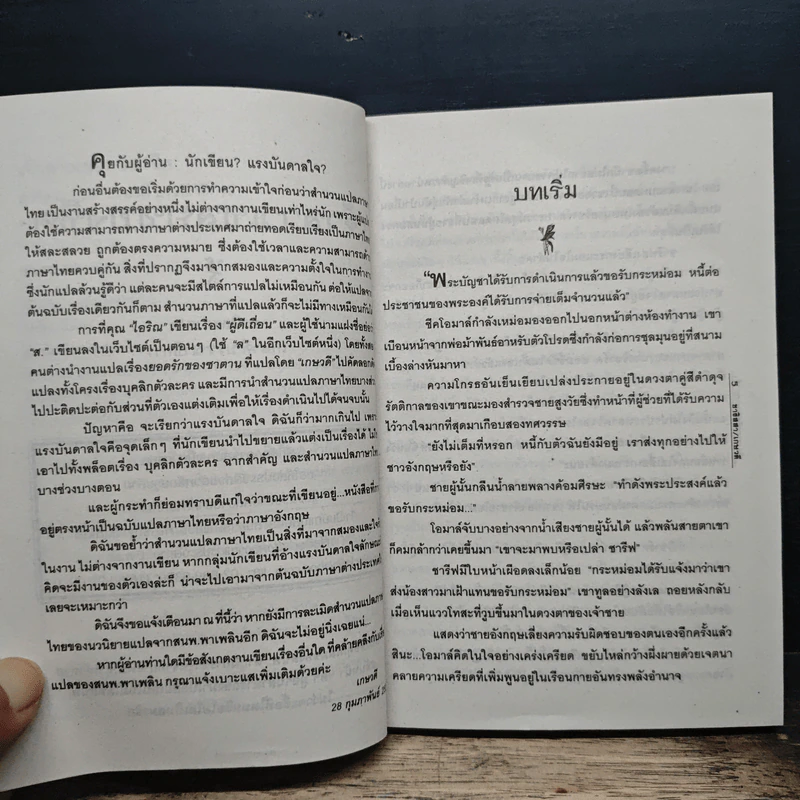 คุยกับผู้อ่าน : นักเขียน? แรงบันดาลใจ?
ก่อนอื่นต้องขอเริ่มด้วยการทำความเข้าใจก่อนว่าสำนวนแปลภาษา
ไทย เป็นงานสร้างสรรค์อย่างหนึ่ง ไม่ต่างจากงานเขียนเท่าไหร่นัก เพราะผู้แปล
ต้องใช้ความสามารถทางภาษาต่างประเทศมาถ่ายทอดเรียบเรียงเป็นภาษาไทย
ให้สละสลวย ถูกต้องตรงความหมาย ซึ่งต้องใช้เวลาและความสามารถด้าน
ภาษาไทยควบคู่กัน สิ่งที่ปรากฏจึงมาจากสมองและความตั้งใจในการทำงาน
ซึ่งนักแปลล้วนรู้ดีว่า แต่ละคนจะมีสไตล์การแปลไม่เหมือนกัน ต่อให้แปลจาก
ต้นฉบับเรื่องเดียวกันก็ตาม สำนวนภาษาที่แปลแล้วก็จะไม่มีทางเหมือนกัน
การที่คุณ "ไอริณ" เขียนเรื่อง "ผู้ดีเถื่อน" และผู้ใช้นามแฝงชื่อย่อว่า
"ส." เขียนลงในเว็บไซต์เป็นตอนๆ (ใช้ "ล" ในอีกเว็บไซต์หนึ่ง) โดยทั้งสอง
คนต่างนำงานแปลเรื่องยอดรักของซาตาน ที่แปลโดย "เกษวดี" ไปคัดลอกดัด
แปลงทั้งโครงเรื่องบุคลิกตัวละคร และมีการนำสำนวนแปลภาษาไทยบางส่วน
ไปปะติดปะต่อกับส่วนที่ตัวเองแต่งเติมเพื่อให้เรื่องดำเนินไปได้จนจบนั้น
ปัญหาคือ จะเรียกว่าแรงบันดาลใจ ดิฉันก็ว่ามากเกินไป เพราะ
แรงบันดาลใจคือจุดเล็กๆ ที่นักเขียนนำไปขยายแล้วแต่งเป็นเรื่องได้ ไม่ใช่
เอาไปทั้งพล็อตเรื่อง บุคลิกตัวละคร ฉากสำคัญ และสำนวนแปลภาษาไทย
บางช่วงบางตอน
และผู้กระทำก็ย่อมทราบดีแก่ใจว่าขณะที่เขียนอยู่...หนังสือที่วาง
อยู่ตรงหน้าเป็นฉบับแปลภาษาไทยหรือว่าภาษาอังกฤษ
ดิฉันขอย้ำว่าสำนวนแปลภาษาไทยเป็นสิ่งที่มาจากสมองและใจ
ในงาน ไม่ต่างจากงานเขียน หากกลุ่มนักเขียนที่อ้างแรงบันดาลใจลักษณะ
คิดจะมีงานของตัวเองล่ะก็ น่าจะไปเอามาจากต้นฉบับภาษาต่างประเทศ
เลยจะเหมาะกว่า
ดิฉันจึงขอแจ้งเตือนมา ณ ที่นี้ว่า หากยังมีการละเมิดสำนวนแปลภาษา
ไทยของนวนิยายแปลจากสนพ.พาเพลินอีก ดิฉันจะไม่อยู่นิ่งเฉยแน่...
หากผู้อ่านท่านใดมีข้อสังเกตงานเขียนเรื่องอื่นใด ที่คล้ายคลึงกับเรื่อง
แปลของสนพ.พาเพลิน กรุณาแจ้งเบาะแสเพิ่มเติมด้วยค่ะ
เกษวดี
28 กุมภาพันธ์
บทเริ่ม
"พระบัญชาได้รับการดำเนินการแล้วขอรับกระหม่อม หนี้ต่อ
ประชาชนของพระองค์ได้รับการจ่ายเต็มจำนวนแล้ว"
ชีคโอมาล์กำลังเหม่อมองออกไปนอกหน้าต่างห้องทำงาน เขา
เบือนหน้าจากพ่อม้าพันธุ์อาหรับตัวโปรดซึ่งกำลังก่อการชุลมุนอยู่ที่สนาม
เบื้องล่างหันมาหา
ความโกรธอันเย็นเยียบเปล่งประกายอยู่ในดวงตาคู่สีดำดุจ
รัตติกาลของเขาขณะมองสำรวจชายสูงวัยซึ่งทำหน้าที่ผู้ช่วยที่ได้รับความ
ไว้วางใจมากที่สุดมาเกือบสองทศวรรษ
"ยังไม่เต็มที่หรอก หนี้กับตัวฉันยังมีอยู่ เราส่งทุกอย่างไปให้
ชาวอังกฤษหรือยัง"
ชายผู้นั้นกลืนน้ำลายพลางค้อมศีรษะ "ทำดังพระประสงค์แล้ว
ขอรับกระหม่อม..."
โอมาล์จับบางอย่างจากน้ำเสียงชายผู้นั้นได้ แล้วพลันสายตาเขา
ก็คมกล้ากว่าเคยขึ้นมา "เขาจะมาพบหรือเปล่า ชารีฟ"
ชารีฟมีใบหน้าเผือดลงเล็กน้อย "กระหม่อมได้รับแจ้งมาว่าเขา
ส่งน้องสาวมาเฝ้าแทนขอรับกระหม่อม" เขาทูลอย่างลังเล ถอยหลังกลับ
เมื่อเห็นแววโทสะที่วูบขึ้นมาในดวงตาของเจ้าชาย
แสดงว่าชายอังกฤษเลี่ยงความรับผิดชอบของตนเองอีกครั้งแล้ว
สินะ...โอมาล์คิดในใจอย่างเคร่งเครียด ขยับไหล่กว้างผึ่งผายด้วยเจตนา
คลายความเครียดที่เพิ่มพูนอยู่ในเรือนกายอันทรงพลังอำนาจ